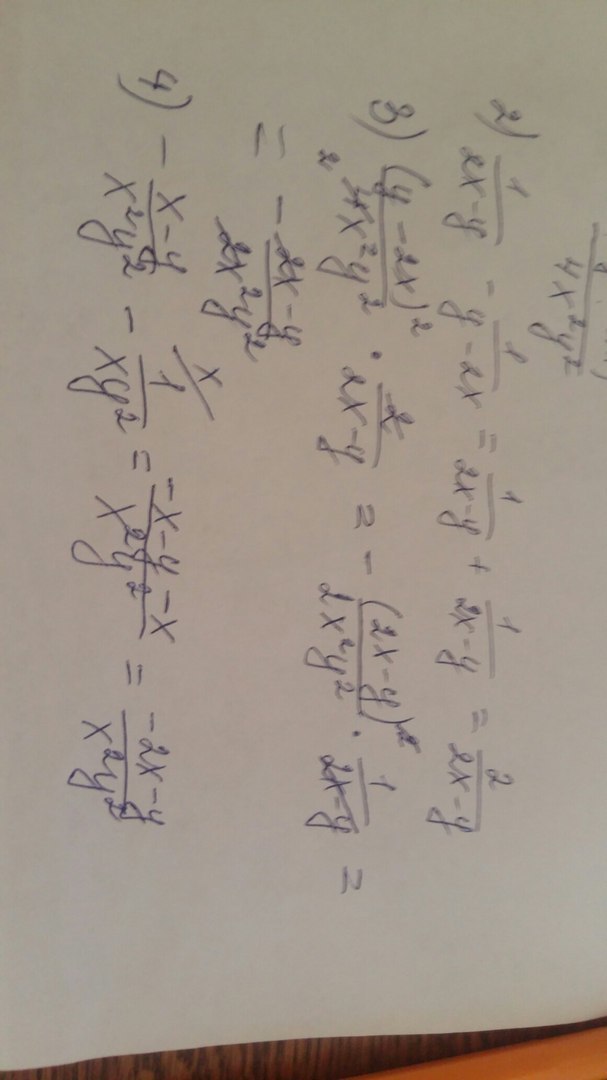 4x²y²
2) 1/(2x-y) - 1/(y-2x) = 1/(2x-y) + 1/(2x-y) = 2/(2x-y)
3) (y-2x)²/(4x²y²) · 2/(2x-y) = - (2x-y)²/(2x²y²) · 1/(2x-y) =
= - (2x-y)/(2x²y²)
4) - (x-y)/(x²y²) - 1/(xy²) = (-x-y-x)/(x²y²) = (-2x-y)/(x²y²)